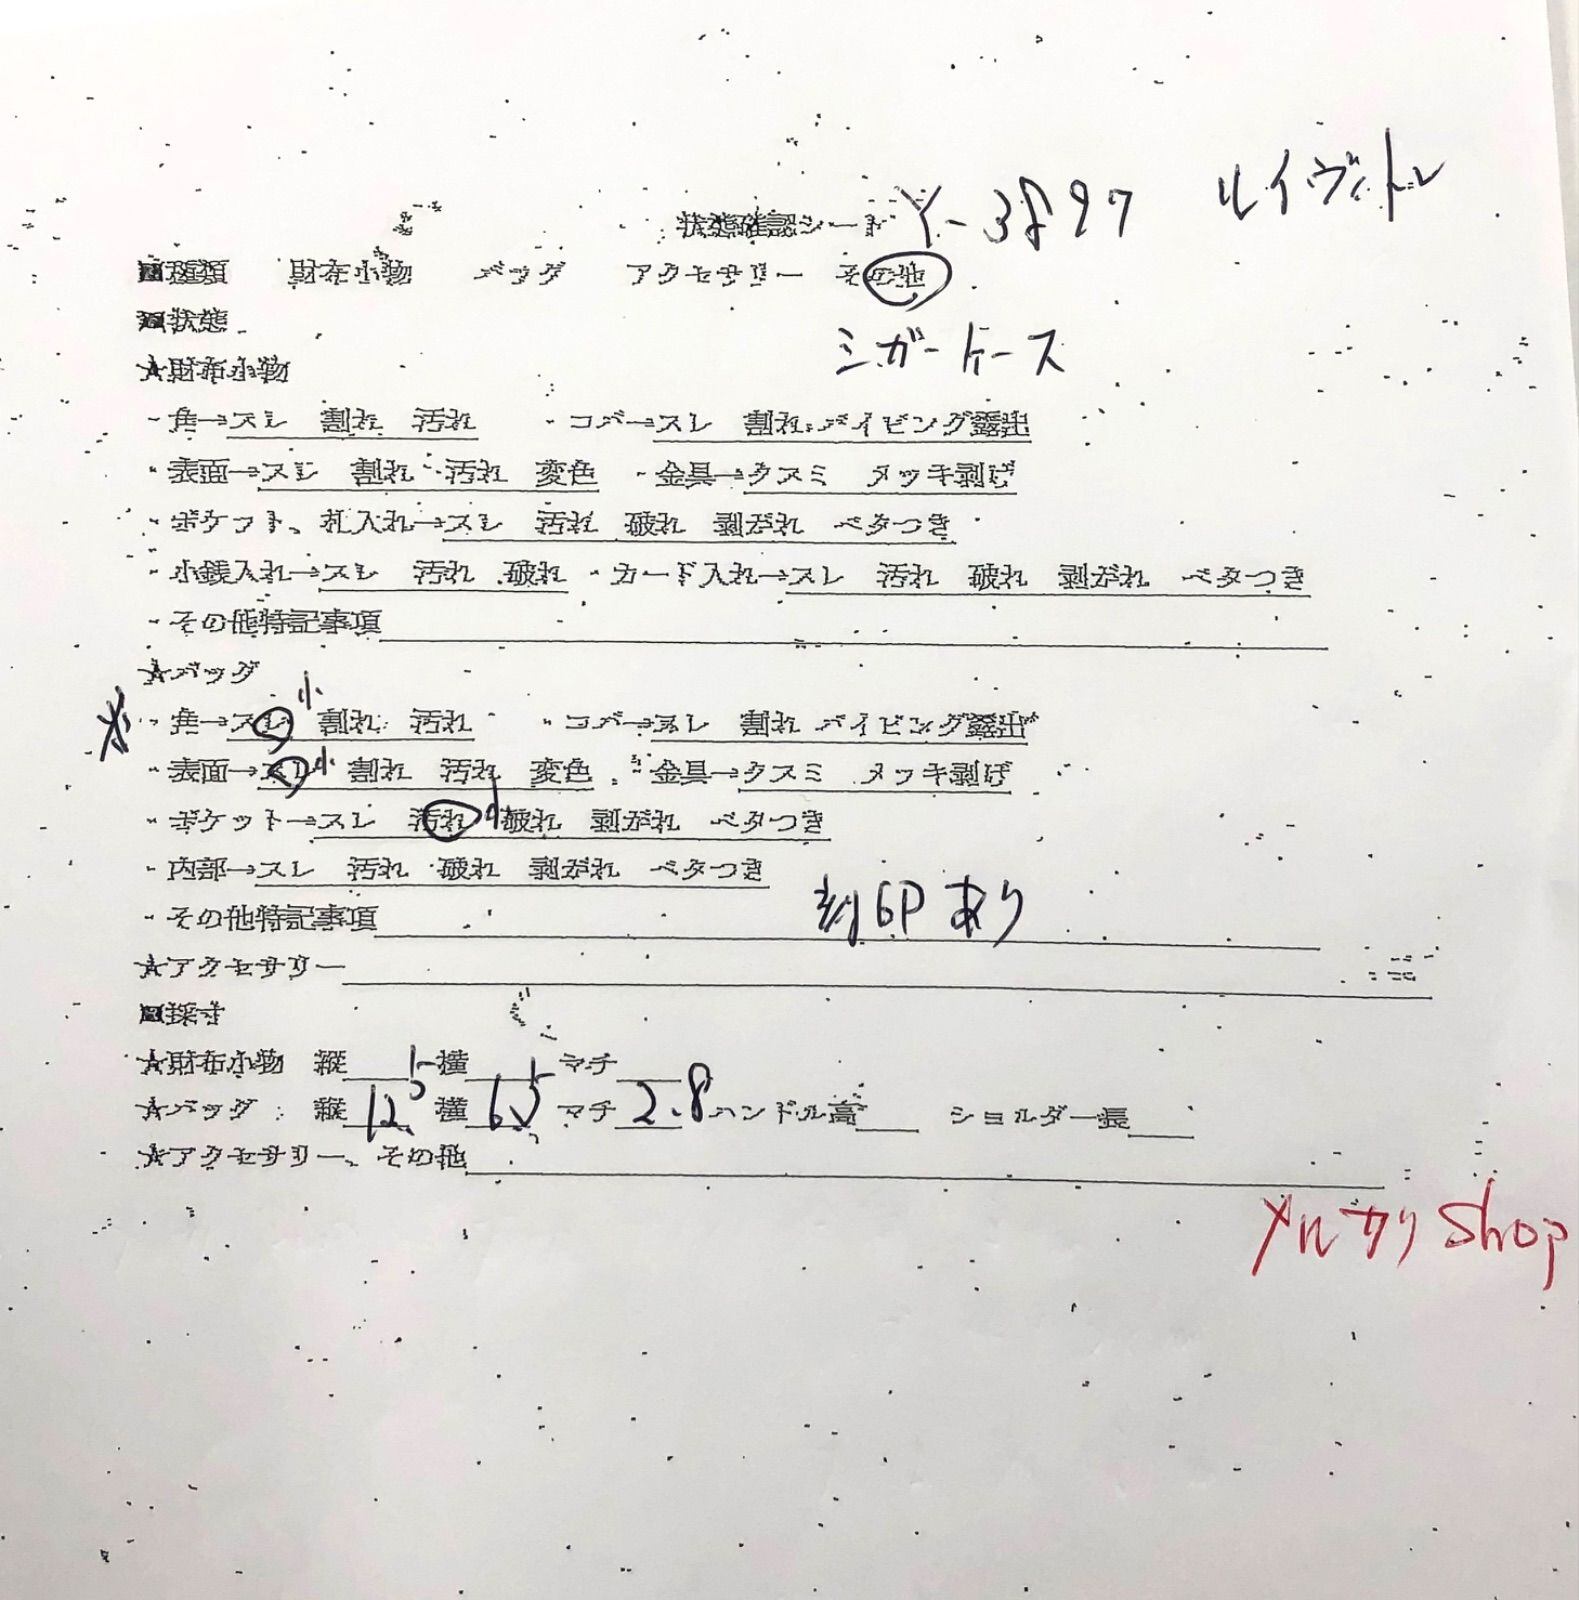 状態確認シート Y-3897 ルイヴィトン
■種類 財布小物 バッグ アクセサリー その他
■状態 シガーケース
★財布小物
・角→スレ 割れ 汚れ ・コバ→スレ 割れ パイピング露出
・表面→スレ 割れ 汚れ 変色 ・金具→クスミ メッキ剥げ
・ポケット、札入れ→スレ 汚れ 破れ 剥がれ ベタつき
・小銭入れ→スレ 汚れ 破れ ・カード入れ→スレ 汚れ 破れ 剥がれ ベタつき
・その他特記事項
★バッグ
・角→スレ小 割れ 汚れ ・コバ→スレ 割れ パイピング露出
・表面→スレ小 割れ 汚れ 変色 ・金具→クスミ メッキ剥げ
・ポケット→スレ 汚れ小 破れ 剥がれ ベタつき
・内部→スレ 汚れ 破れ 剥がれ ベタつき
・その他特記事項 刻印あり
★アクセサリー
■採寸
★財布小物 縦 横 マチ
★バッグ 縦12.5 横6.5 マチ2.8 ハンドル高 ショルダー長
★アクセサリー、その他
メルカリShop